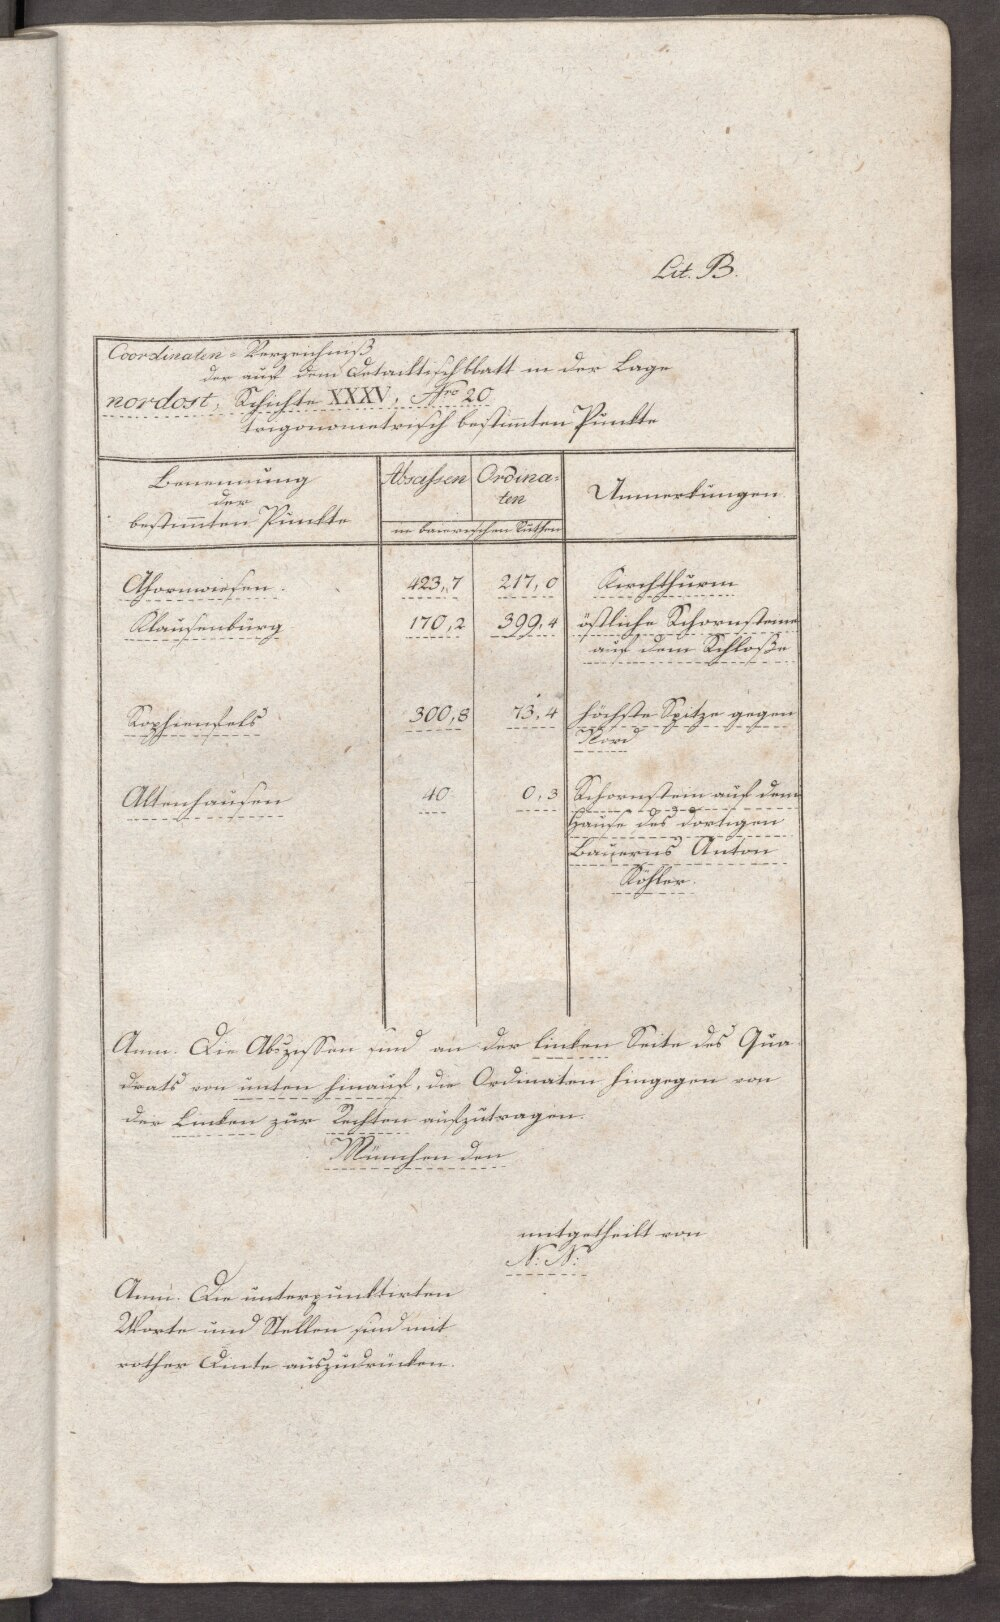 Lit. B.
Coordinaten-Verzeichniß
der auf dem Detailtischblatt in der Lage
nordost, Schichte XXXV, Nro 20
trigonometrisch bestimmten Punkte
Benennung
der
bestimmten Punkte
Abscissen
Ordina-
ten
in baierischen Ruthen
Anmerkungen
Ahornwiesen. 423,7 217,0 Kirchthurm
Klausenburg 170,2 399,4 östliche Schornsteine
auf dem Schloße
Sophienfels 300,8 73,4 höchste Spitze gegen
Nord
Altenhausen 40 0,3 Schornstein auf dem
Hause des dortigen
Bauerns Anton
Köhler.
Anm. Die Abszissen sind an der linken Seite des Qua
drats von unten hinauf, die Ordinaten hingegen von
der Linken zur Rechten aufzutragen.
München den
mitgetheilt von
N: N:
Anm. Die unterpunktirten
Worte und Stellen sind mit
rother Dinte auszudrücken.